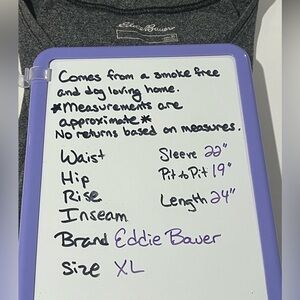 Eddie Bauer
Comes from a smoke free
and dog loving home.
*Measurements are
approximate*
No returns based on measures.
Waist Sleeve 22"
Hip Pit to Pit 19"
Rise Length 24"
Inseam
Brand Eddie Bauer
Size XL